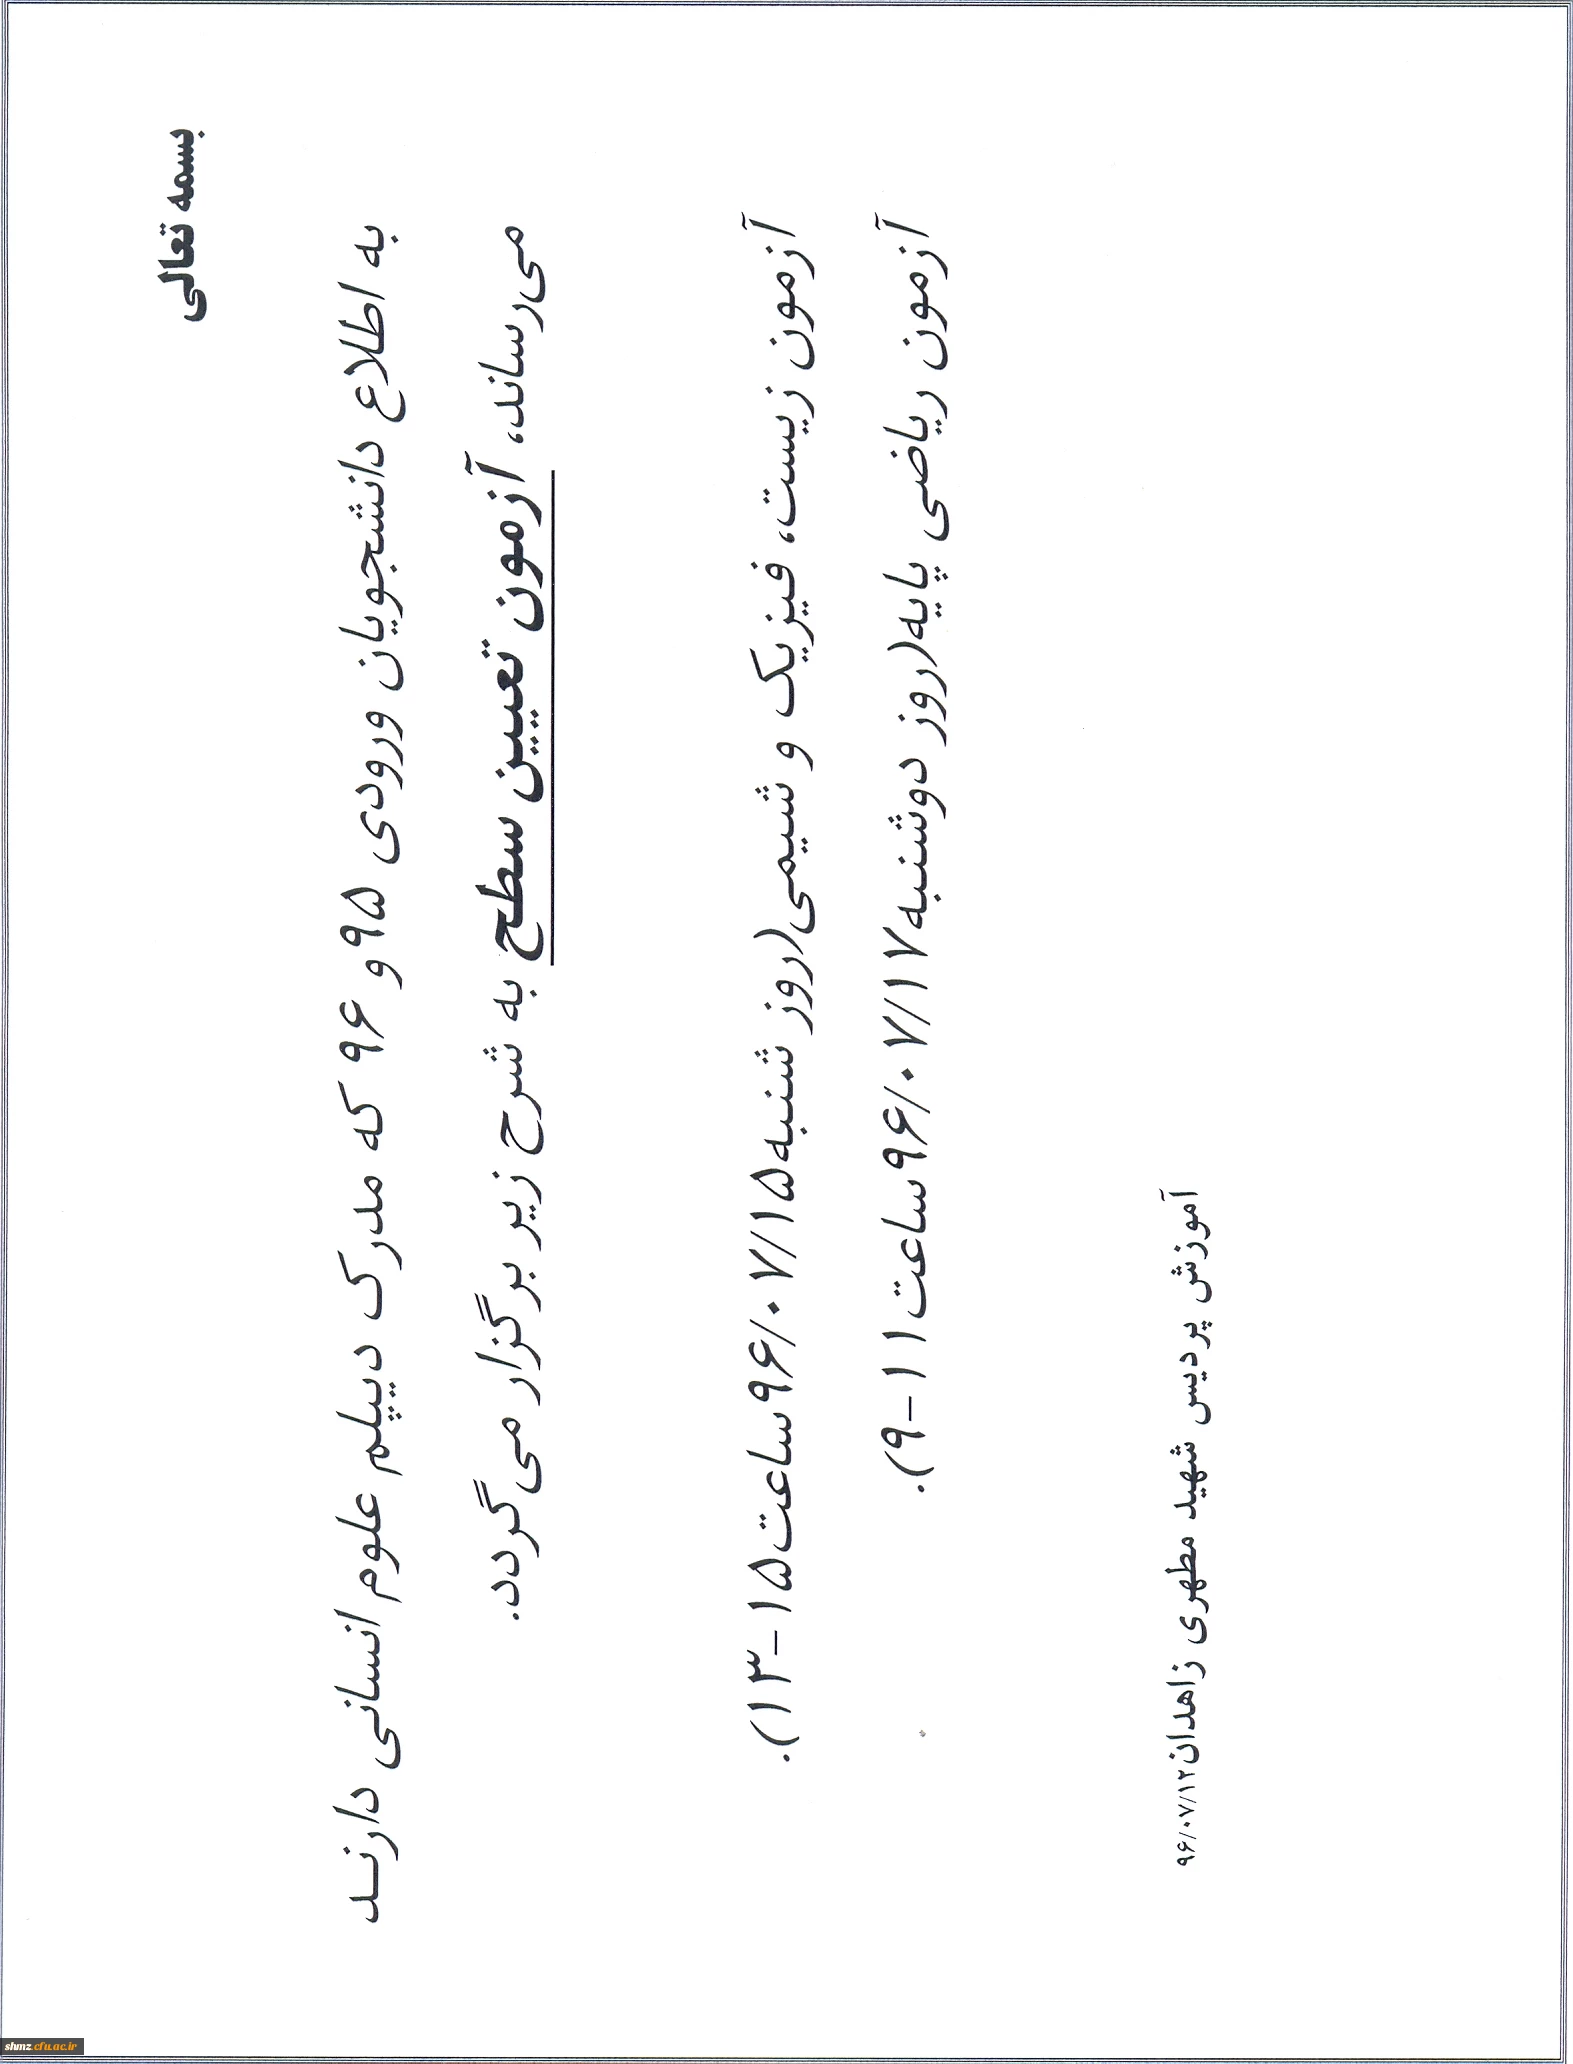 بسمه تعالی
به اطلاع دانشجویان ورودی ۹۵ و ۹۶ که مدرک دیپلم علوم انسانی دارند
می‌رساند، آزمون تعیین سطح به شرح زیر برگزار می‌گردد.
آزمون زیست، فیزیک و شیمی(روز شنبه۹۶/۰۷/۱۵ساعت۱۵-۱۳).
آزمون ریاضی پایه(روز دوشنبه۹۶/۰۷/۱۷ساعت۱۱-۹).
آموزش پردیس شهید مطهری زاهدان۹۶/۰۷/۱۲
shmz.cfu.ac.ir